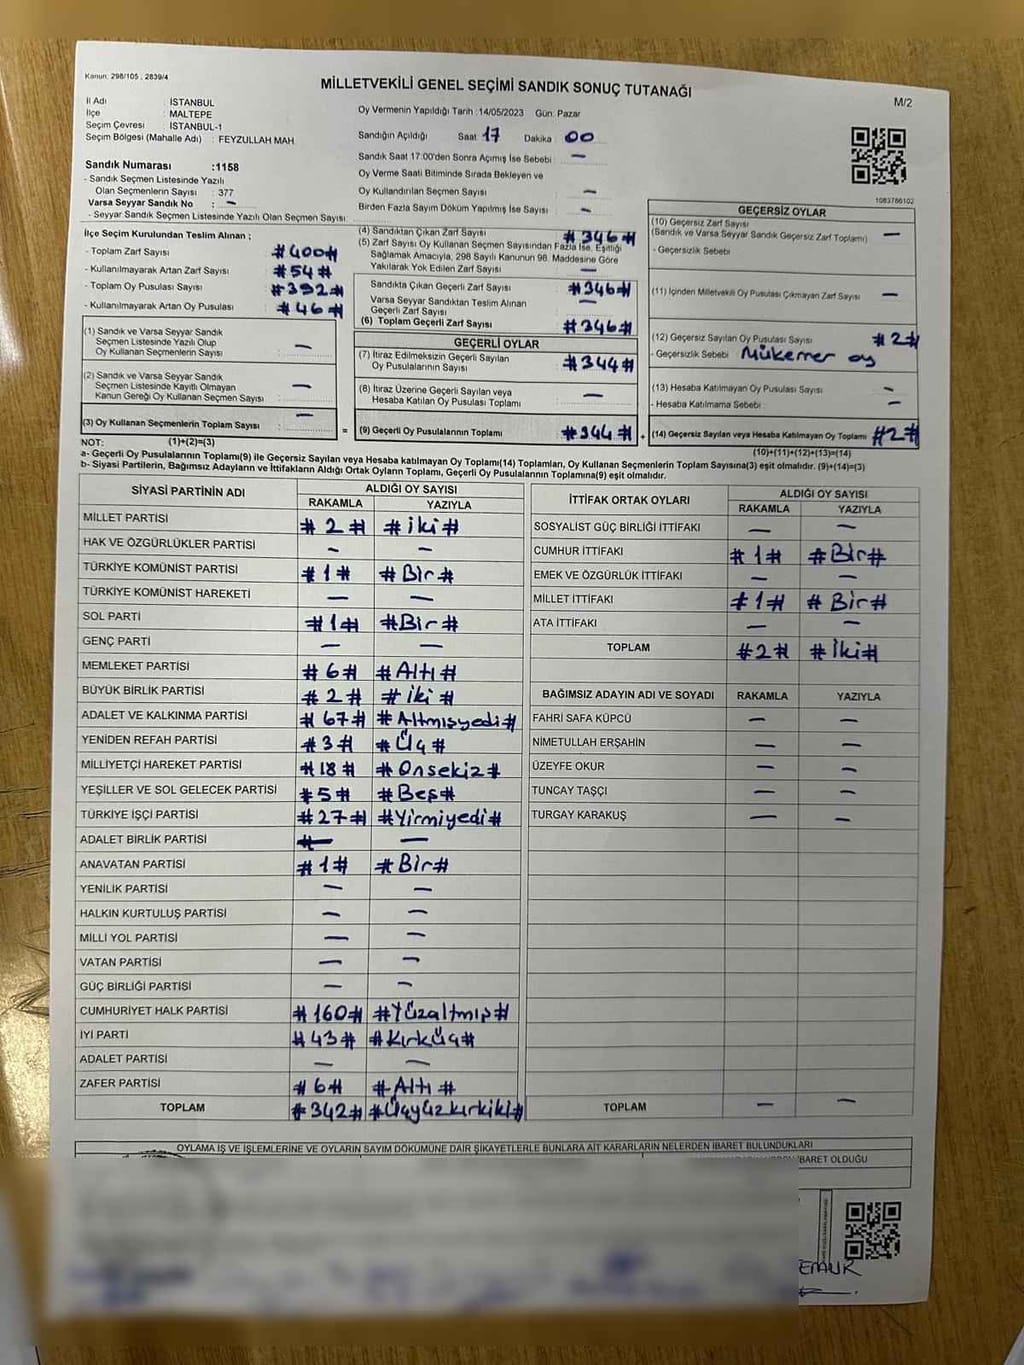 Kanun: 298/105 , 2839/4
MİLLETVEKİLİ GENEL SEÇİMİ SANDIK SONUÇ TUTANAĞI
M/2
İl Adı : İSTANBUL
İlçe : MALTEPE
Seçim Çevresi : İSTANBUL-1
Seçim Bölgesi (Mahalle Adı) : FEYZULLAH MAH.
Oy Vermenin Yapıldığı Tarih :14/05/2023 Gün: Pazar
Sandığın Açıldığı Saat : 17 Dakika : 00
Sandık Saat 17:00'den Sonra Açımış İse Sebebi : –
Oy Verme Saati Bitiminde Sırada Bekleyen ve
Oy Kullandırılan Seçmen Sayısı –
Birden Fazla Sayım Döküm Yapılmış İse Sayısı –
Sandık Numarası :1158
- Sandık Seçmen Listesinde Yazılı
Olan Seçmenlerin Sayısı : 377
Varsa Seyyar Sandık No : –
- Seyyar Sandık Seçmen Listesinde Yazılı Olan Seçmen Sayısı:
1083786102
İlçe Seçim Kurulundan Teslim Alınan ;
- Toplam Zarf Sayısı #400#
- Kullanılmayarak Artan Zarf Sayısı #54#
- Toplam Oy Pusulası Sayısı #392#
- Kullanılmayarak Artan Oy Pusulası #46#
(1) Sandık ve Varsa Seyyar Sandık
Seçmen Listesinde Yazılı Olup
Oy Kullanan Seçmenlerin Sayısı –
(2) Sandık ve Varsa Seyyar Sandık
Seçmen Listesinde Kayıtlı Olmayan
Kanun Gereği Oy Kullanan Seçmen Sayısı –
(3) Oy Kullanan Seçmenlerin Toplam Sayısı –
(4) Sandıktan Çıkan Zarf Sayısı #346#
(5) Zarf Sayısı Oy Kullanan Seçmen Sayısından Fazla İse, Eşitliği
Sağlamak Amacıyla, 298 Sayılı Kanunun 98. Maddesine Göre
Yakılarak Yok Edilen Zarf Sayısı –
Sandıkta Çıkan Geçerli Zarf Sayısı #346#
Varsa Seyyar Sandıktan Teslim Alınan
Geçerli Zarf Sayısı –
(6) Toplam Geçerli Zarf Sayısı #346#
GEÇERLİ OYLAR
(7) İtiraz Edilmeksizin Geçerli Sayılan
Oy Pusulalarının Sayısı #344#
(8) İtiraz Üzerine Geçerli Sayılan veya
Hesaba Katılan Oy Pusulası Toplamı –
= (9) Geçerli Oy Pusulalarının Toplamı #344# +
GEÇERSİZ OYLAR
(10) Geçersiz Zarf Sayısı
(Sandık ve Varsa Seyyar Sandık Geçersiz Zarf Toplamı) –
- Geçersizlik Sebebi
(11) İçinden Milletvekili Oy Pusulası Çıkmayan Zarf Sayısı –
(12) Geçersiz Sayılan Oy Pusulası Sayısı #2#
- Geçersizlik Sebebi Mükerrer oy
(13) Hesaba Katılmayan Oy Pusulası Sayısı –
- Hesaba Katılmama Sebebi –
(14) Geçersiz Sayılan veya Hesaba Katılmayan Oy Toplamı #2#
NOT: (1)+(2)=(3) (10)+(11)+(12)+(13)=(14)
a- Geçerli Oy Pusulalarının Toplamı(9) ile Geçersiz Sayılan veya Hesaba katılmayan Oy Toplamı(14) Toplamları, Oy Kullanan Seçmenlerin Toplam Sayısına(3) eşit olmalıdır. (9)+(14)=(3)
b- Siyasi Partilerin, Bağımsız Adayların ve İttifakların Aldığı Ortak Oyların Toplamı, Geçerli Oy Pusulalarının Toplamına(9) eşit olmalıdır.
SİYASİ PARTİNİN ADI ALDIĞI OY SAYISI
RAKAMLA YAZIYLA
MİLLET PARTİSİ #2# #iki#
HAK VE ÖZGÜRLÜKLER PARTİSİ – –
TÜRKİYE KOMÜNİST PARTİSİ #1# #Bir#
TÜRKİYE KOMÜNİST HAREKETİ – –
SOL PARTİ #1# #Bir#
GENÇ PARTİ – –
MEMLEKET PARTİSİ #6# #Altı#
BÜYÜK BİRLİK PARTİSİ #2# #iki#
ADALET VE KALKINMA PARTİSİ #67# #Altmışyedi#
YENİDEN REFAH PARTİSİ #3# #Üç#
MİLLİYETÇİ HAREKET PARTİSİ #18# #Onsekiz#
YEŞİLLER VE SOL GELECEK PARTİSİ #5# #Beş#
TÜRKİYE İŞÇİ PARTİSİ #27# #Yirmiyedi#
ADALET BİRLİK PARTİSİ – –
ANAVATAN PARTİSİ #1# #Bir#
YENİLİK PARTİSİ – –
HALKIN KURTULUŞ PARTİSİ – –
MİLLİ YOL PARTİSİ – –
VATAN PARTİSİ – –
GÜÇ BİRLİĞİ PARTİSİ – –
CUMHURİYET HALK PARTİSİ #160# #Yüzaltmış#
İYİ PARTİ #43# #Kırküç#
ADALET PARTİSİ – –
ZAFER PARTİSİ #6# #Altı#
TOPLAM #342# #Üçyüzkırkiki#
İTTİFAK ORTAK OYLARI ALDIĞI OY SAYISI
RAKAMLA YAZIYLA
SOSYALİST GÜÇ BİRLİĞİ İTTİFAKI – –
CUMHUR İTTİFAKI #1# #Bir#
EMEK VE ÖZGÜRLÜK İTTİFAKI – –
MİLLET İTTİFAKI #1# #Bir#
ATA İTTİFAKI – –
TOPLAM #2# #iki#
BAĞIMSIZ ADAYIN ADI VE SOYADI RAKAMLA YAZIYLA
FAHRİ SAFA KÜPCÜ – –
NİMETULLAH ERŞAHİN – –
ÜZEYFE OKUR – –
TUNCAY TAŞÇI – –
TURGAY KARAKUŞ – –
TOPLAM – –
OYLAMA İŞ VE İŞLEMLERİNE VE OYLARIN SAYIM DÖKÜMÜNE DAİR ŞİKAYETLERLE BUNLARA AİT KARARLARIN NELERDEN İBARET BULUNDUKLARI
İBARET OLDUĞU
EMUR